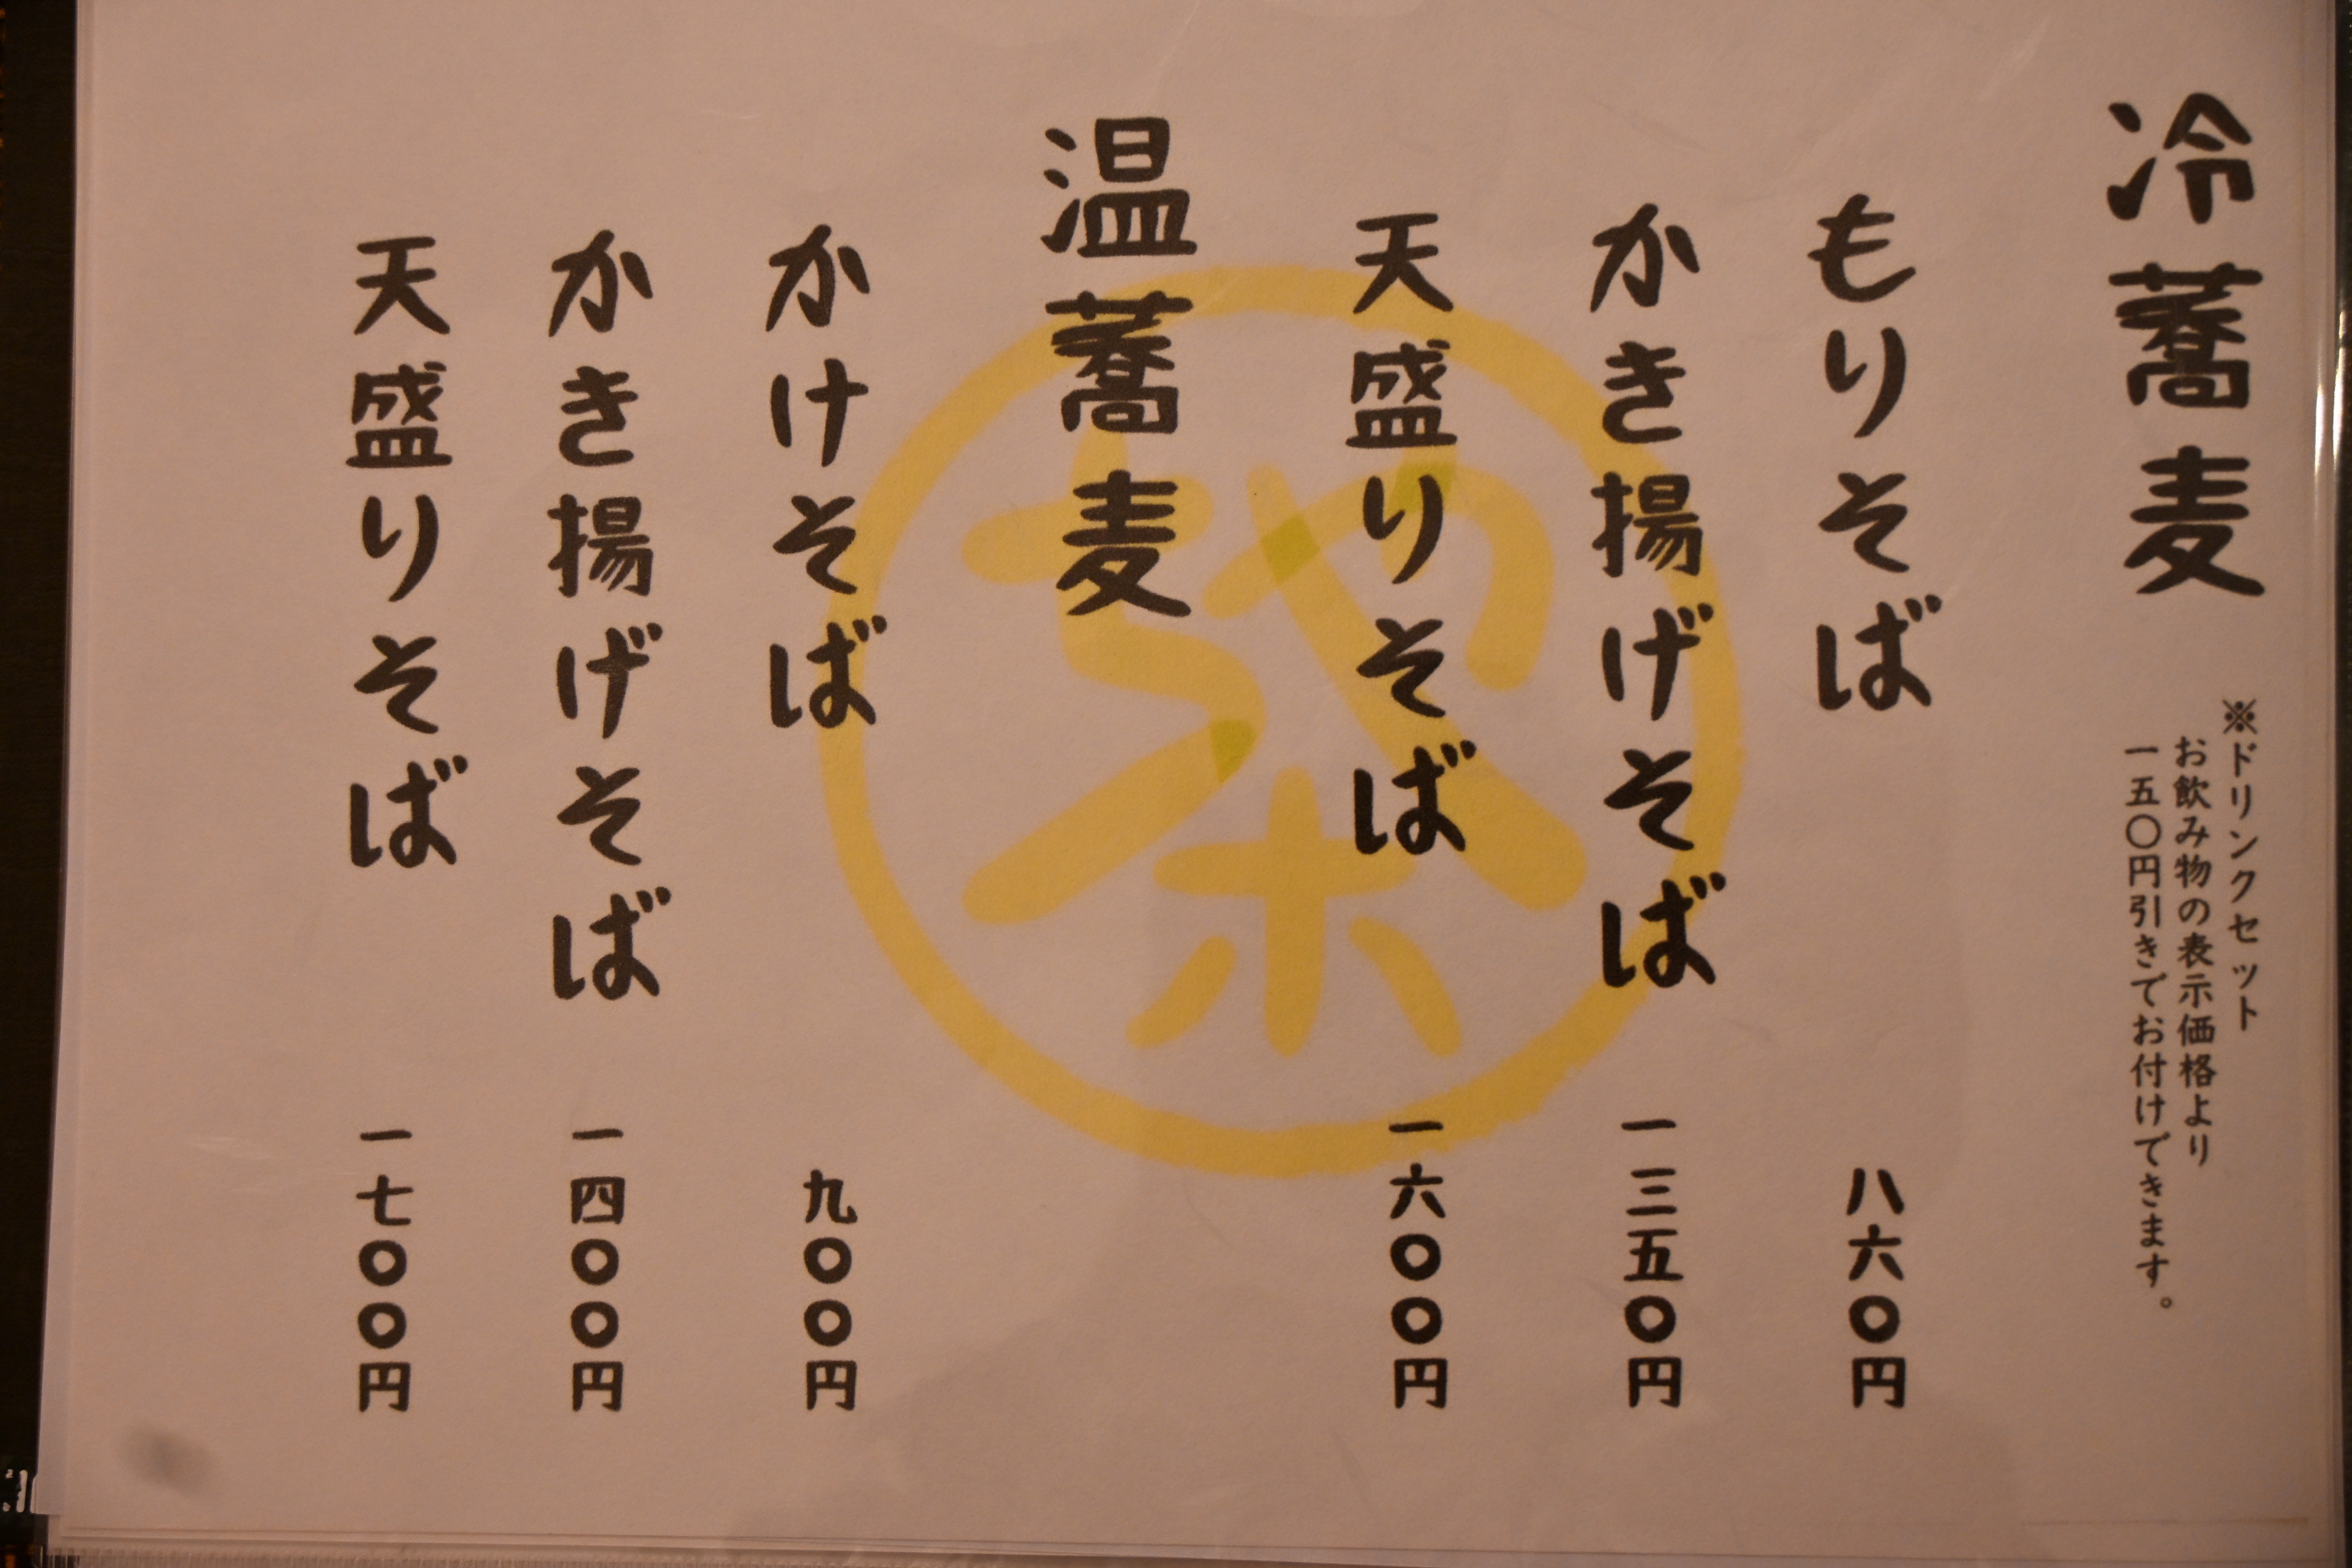 冷蕎麦
※ドリンクセット
お飲み物の表示価格より
一五〇円引きでお付けできます。
もりそば 八六〇円
かき揚げそば 一三五〇円
天盛りそば 一六〇〇円
温蕎麦
かけそば 九〇〇円
かき揚げそば 一四〇〇円
天盛りそば 一七〇〇円